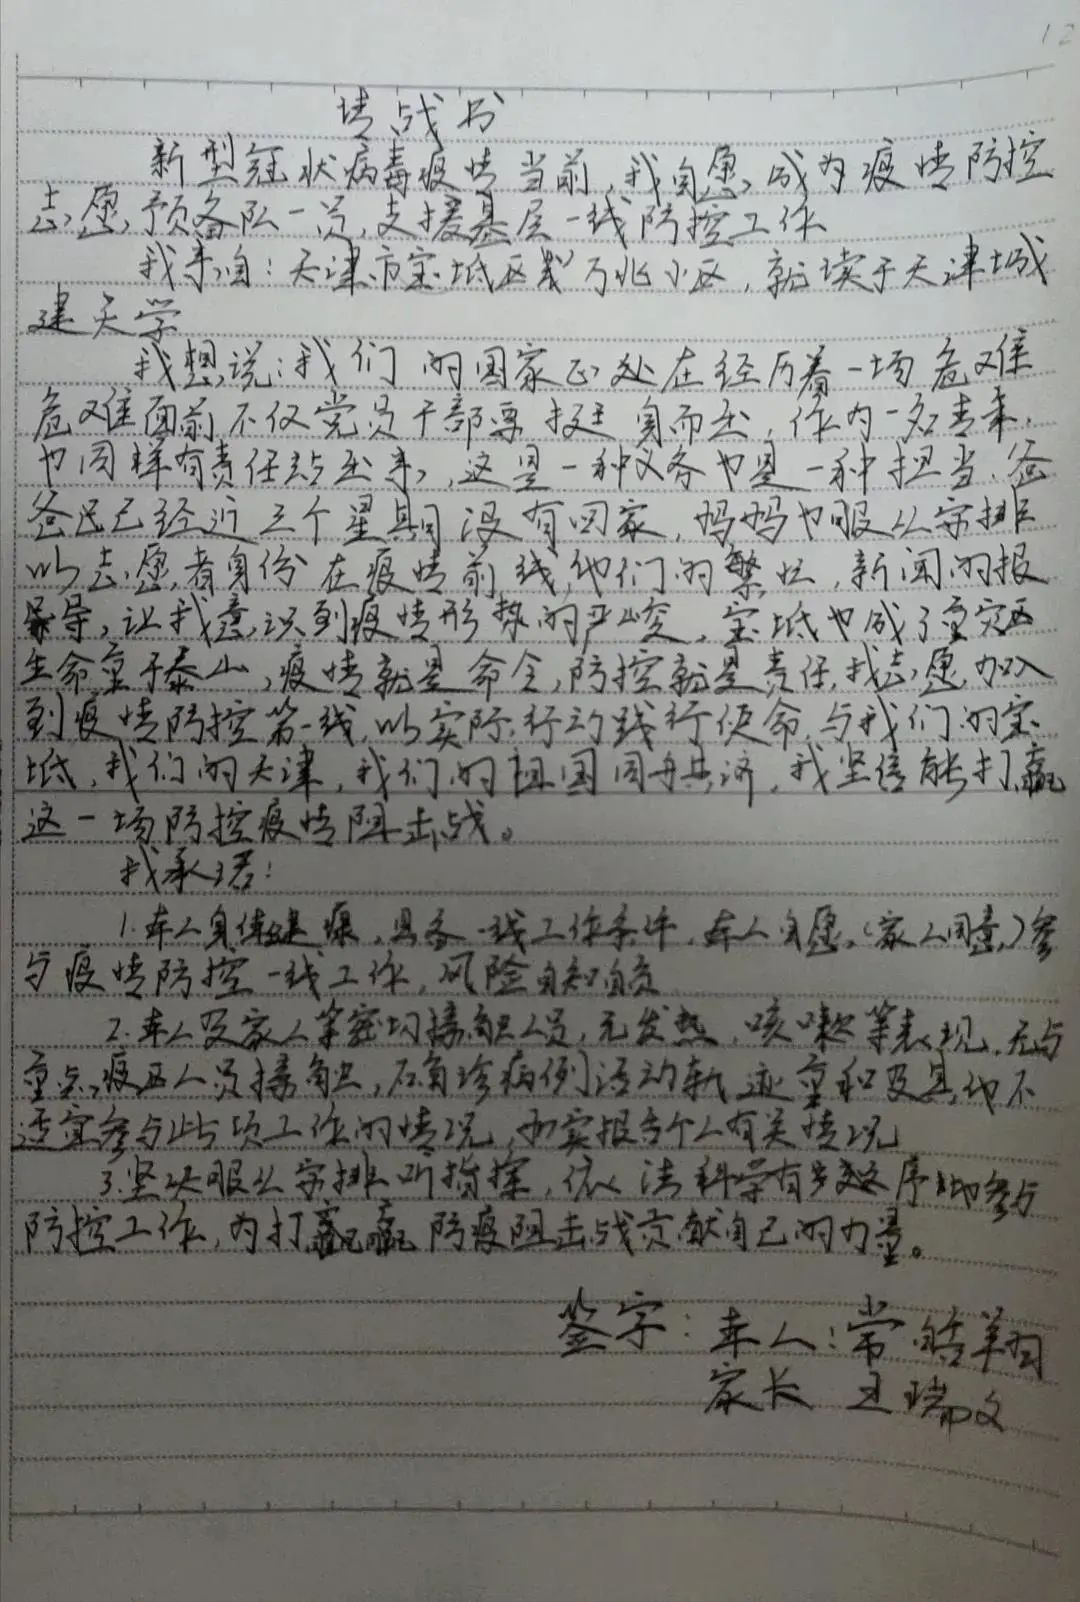 12
请战书
新型冠状病毒疫情当前,我自愿成为疫情防控
志愿预备队一员,支援基层一线防控工作
我来自:天津市宝坻区 万兆小区,就读于天津城
建大学
我想说:我们的国家正处在经历着一场危难
危难面前不仅党员干部要挺身而出,作为一名青年,
也同样有责任站出来,这是一种义务也是一种担当、爸
爸 已经近三个星期没有回家,妈妈也服从安排
以志愿者身份在疫情前线,他们的繁忙,新闻的报
导,让我意识到疫情形势的严峻,宝坻也成了重灾区
生命重于泰山,疫情就是命令,防控就是责任,我志愿加入
到疫情防控第一线,以实际行动践行使命,与我们的宝
坻,我们的天津,我们的祖国同舟共济,我坚信能打赢
这一场防控疫情阻击战。
我承诺:
1.本人身体健康,具备一线工作条件,本人自愿,(家人同意)参
与疫情防控一线工作,风险自知自负
2.本人及家人等密切接触人员,无发热,咳嗽等表现,无与
重点疫区人员接触,确诊病例活动轨迹重和及其他不
适宜参与此项工作的情况,如实报告个人有关情况
3.坚决服从安排听指挥,依法科学有 序地参与
防控工作,为打赢防疫阻击战贡献自己的力量。
签字:本人:常皓翔
家长 王瑞文